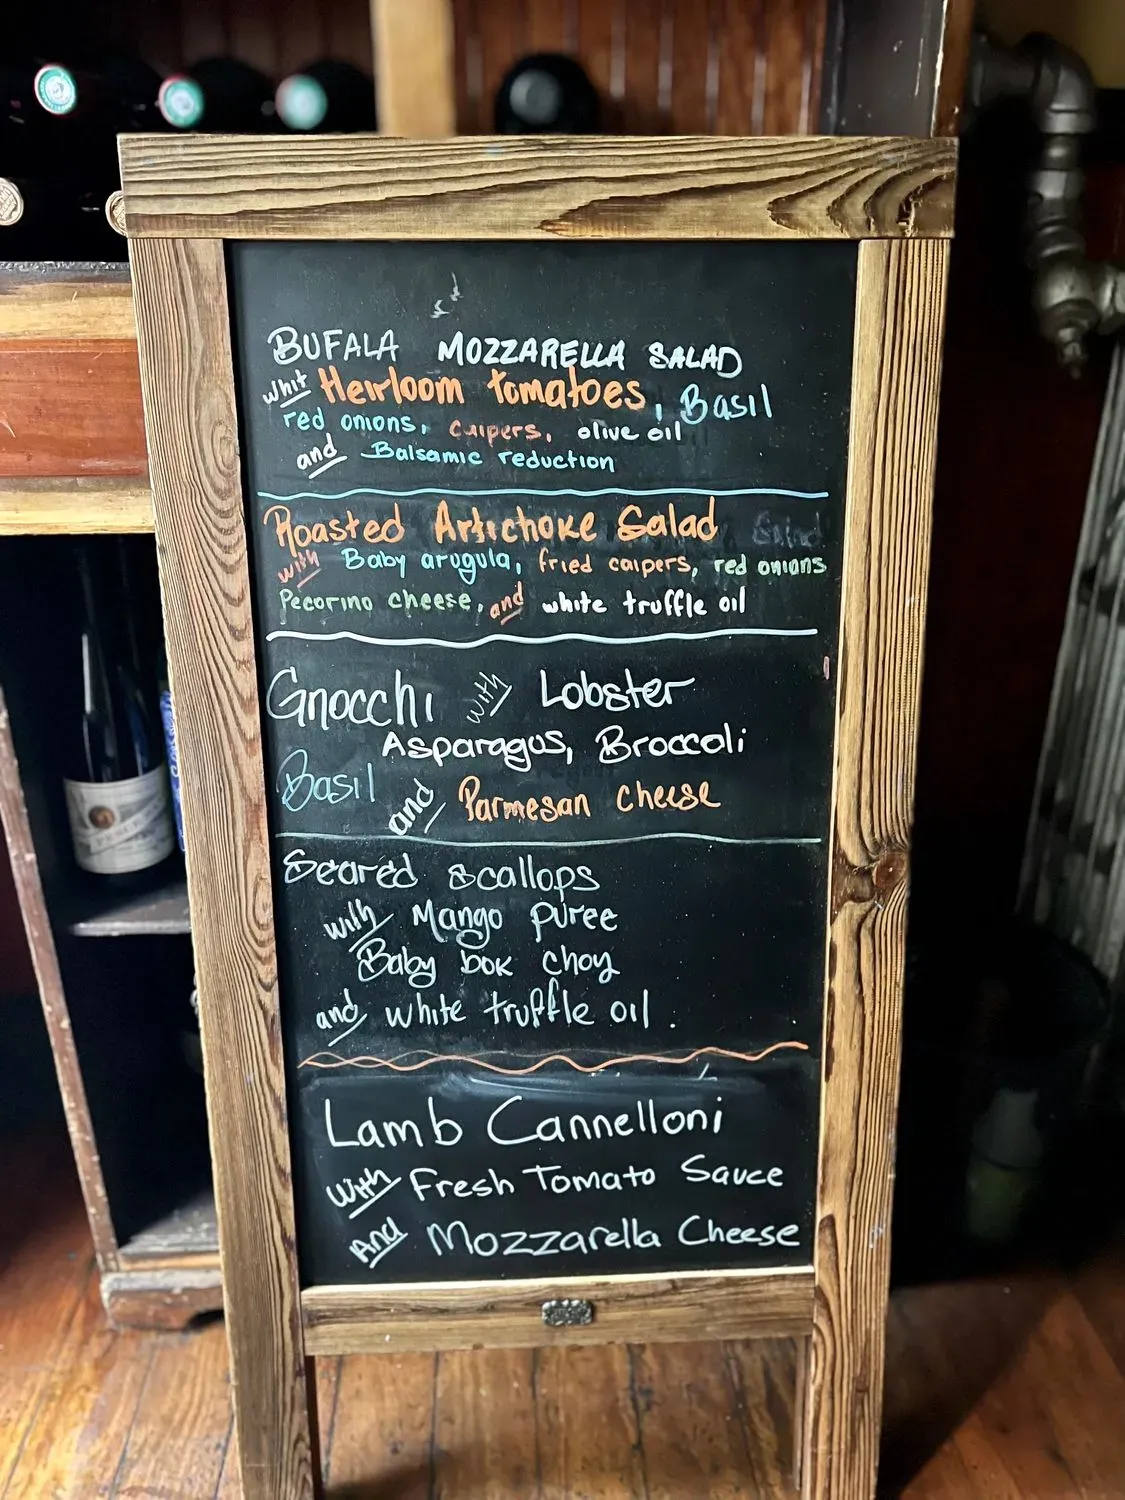 BUFALA MOZZARELLA SALAD
whit Heirloom tomatoes, Basil
red onions, caipers, olive oil
and Balsamic reduction
Roasted Artichoke Salad
with Baby arugula, fried caipers, red onions
Pecorino cheese, and white truffle oil
Gnocchi with Lobster
Asparagus, Broccoli
Basil and Parmesan cheese
Seared scallops
with Mango puree
Baby bok choy
and white truffle oil.
Lamb Cannelloni
With Fresh Tomato Sauce
And Mozzarella Cheese